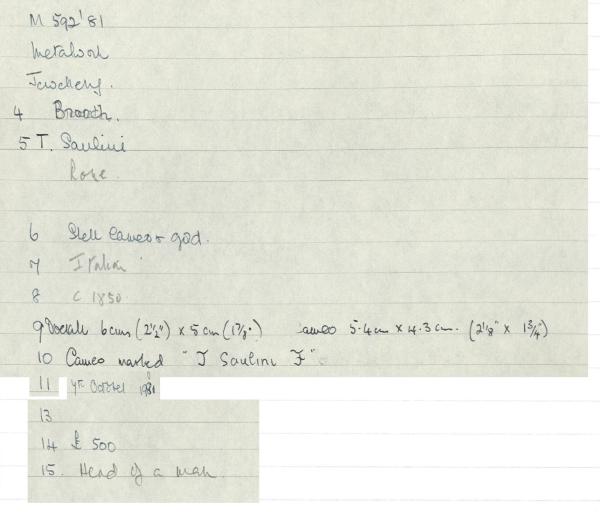 M 592'81
Metalwork
Jewellery.
4 Brooch.
5 T. Saulini
Rome.
6 Shell Cameo + gold.
7 Italian
8 c 1850
9 Overall 6cms (2½") x 5 cm (1⅞") Cameo 5.4 cm x 4.3 cm. (2⅛" x 1¾")
10 Cameo marked "T Saulini F".
11 1981
13
14 £ 500
15. Head of a man